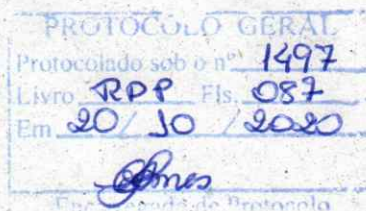 PROTOCOLO GERAL
Protocolado sob o nº 1497
Livro RDP Fls. 087
Em 20/10/2020
Encarregada de Protocolo